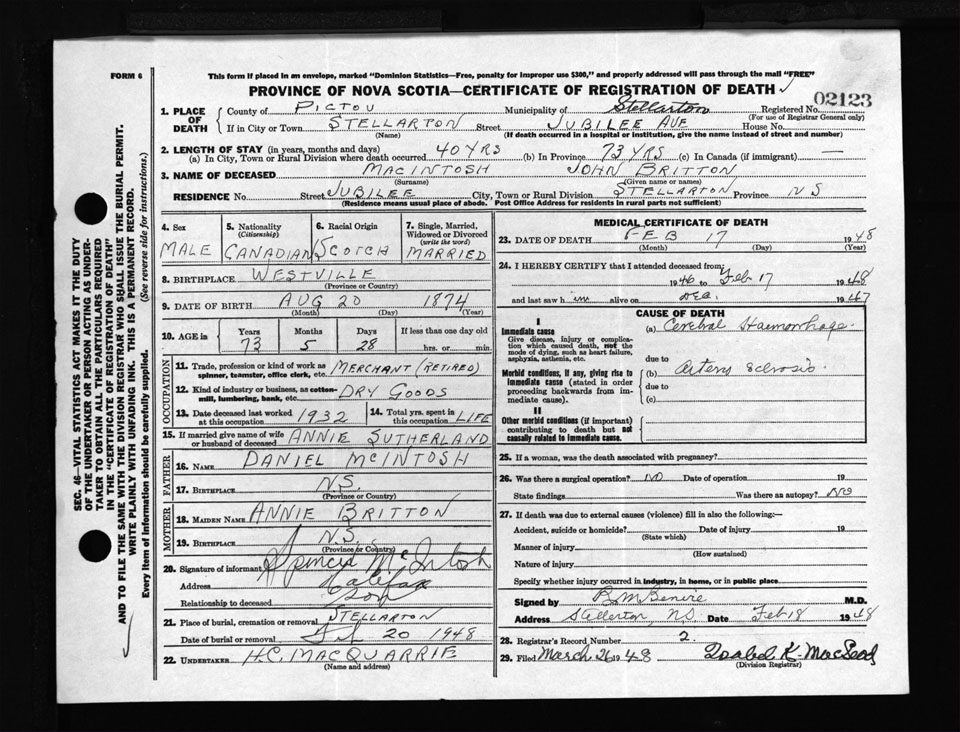 FORM 6
This form if placed in an envelope, marked "Dominion Statistics—Free, penalty for improper use $300," and properly addressed will pass through the mail "FREE"
PROVINCE OF NOVA SCOTIA—CERTIFICATE OF REGISTRATION OF DEATH
02123
1. PLACE OF DEATH County of PICTOU Municipality of Stellarton Registered No.
(For use of Registrar General only)
If in City or Town STELLARTON Street JUBILEE AVE House No.
(Name) (If death occurred in a hospital or institution, give the name instead of street and number)
2. LENGTH OF STAY (in years, months and days)
(a) In City, Town or Rural Division where death occurred 40 YRS (b) In Province 73 YRS (c) In Canada (if immigrant) —
3. NAME OF DECEASED MACINTOSH JOHN BRITTON
(Surname) (Given name or names)
RESIDENCE No. Street JUBILEE City, Town or Rural Division STELLARTON Province N S
(Residence means usual place of abode. Post Office Address for residents in rural parts not sufficient)
4. Sex
MALE
5. Nationality (Citizenship)
CANADIAN
6. Racial Origin
SCOTCH
7. Single, Married, Widowed or Divorced (write the word)
MARRIED
8. BIRTHPLACE WESTVILLE
(Province or Country)
9. DATE OF BIRTH AUG 20 1874
(Month) (Day) (Year)
10. AGE in Years Months Days If less than one day old
73 5 28 hrs. or min.
OCCUPATION
11. Trade, profession or kind of work as spinner, teamster, office clerk, etc. MERCHANT (RETIRED)
12. Kind of industry or business, as cotton-mill, lumbering, bank, etc. DRY GOODS
13. Date deceased last worked at this occupation 1932
14. Total yrs. spent in this occupation LIFE
15. If married give name of wife or husband of deceased ANNIE SUTHERLAND
FATHER
16. NAME DANIEL MCINTOSH
17. BIRTHPLACE N.S.
(Province or Country)
MOTHER
18. MAIDEN NAME ANNIE BRITTON
19. BIRTHPLACE N.S.
(Province or Country)
20. Signature of informant Spencer McIntosh
Address Halifax
Relationship to deceased Son
21. Place of burial, cremation or removal STELLARTON
Date of burial or removal Feb 20 1948
22. UNDERTAKER H.C. MACQUARRIE
(Name and address)
MEDICAL CERTIFICATE OF DEATH
23. DATE OF DEATH FEB 17 1948
(Month) (Day) (Year)
24. I HEREBY CERTIFY that I attended deceased from:
1946 to Feb 17 1948
and last saw him alive on Dec. 1947
CAUSE OF DEATH
I
Immediate cause
Give disease, injury or complication which caused death, not the mode of dying, such as heart failure, asphyxia, asthenia, etc.
(a) Cerebral Haemorrhage.
due to
Morbid conditions, if any, giving rise to immediate cause (stated in order proceeding backwards from immediate cause)
(b) Artery sclrosis.
due to
(c)
II
Other morbid conditions (if important) contributing to death but not causally related to immediate cause.
25. If a woman, was the death associated with pregnancy?
26. Was there a surgical operation? NO Date of operation 19
State findings Was there an autopsy? NO
27. If death was due to external causes (violence) fill in also the following:—
Accident, suicide or homicide? Date of injury 19
(State which)
Manner of injury
(How sustained)
Nature of injury
Specify whether injury occurred in industry, in home, or in public place
Signed by M.D.
Address Stellarton, N.S. Date Feb 18 1948
28. Registrar's Record Number 2.
29. Filed March 26 1948 Isabel K. MacLeod
(Division Registrar)
SEC. 46—VITAL STATISTICS ACT MAKES IT THE DUTY
OF THE UNDERTAKER OR PERSON ACTING AS UNDER-
TAKER TO OBTAIN ALL THE PARTICULARS REQUIRED
IN THE "CERTIFICATE OF REGISTRATION OF DEATH"
AND TO FILE THE SAME WITH THE DIVISION REGISTRAR WHO SHALL ISSUE THE BURIAL PERMIT.
WRITE PLAINLY WITH UNFADING INK. THIS IS A PERMANENT RECORD.
Every item of information should be carefully supplied. (See reverse side for instructions.)